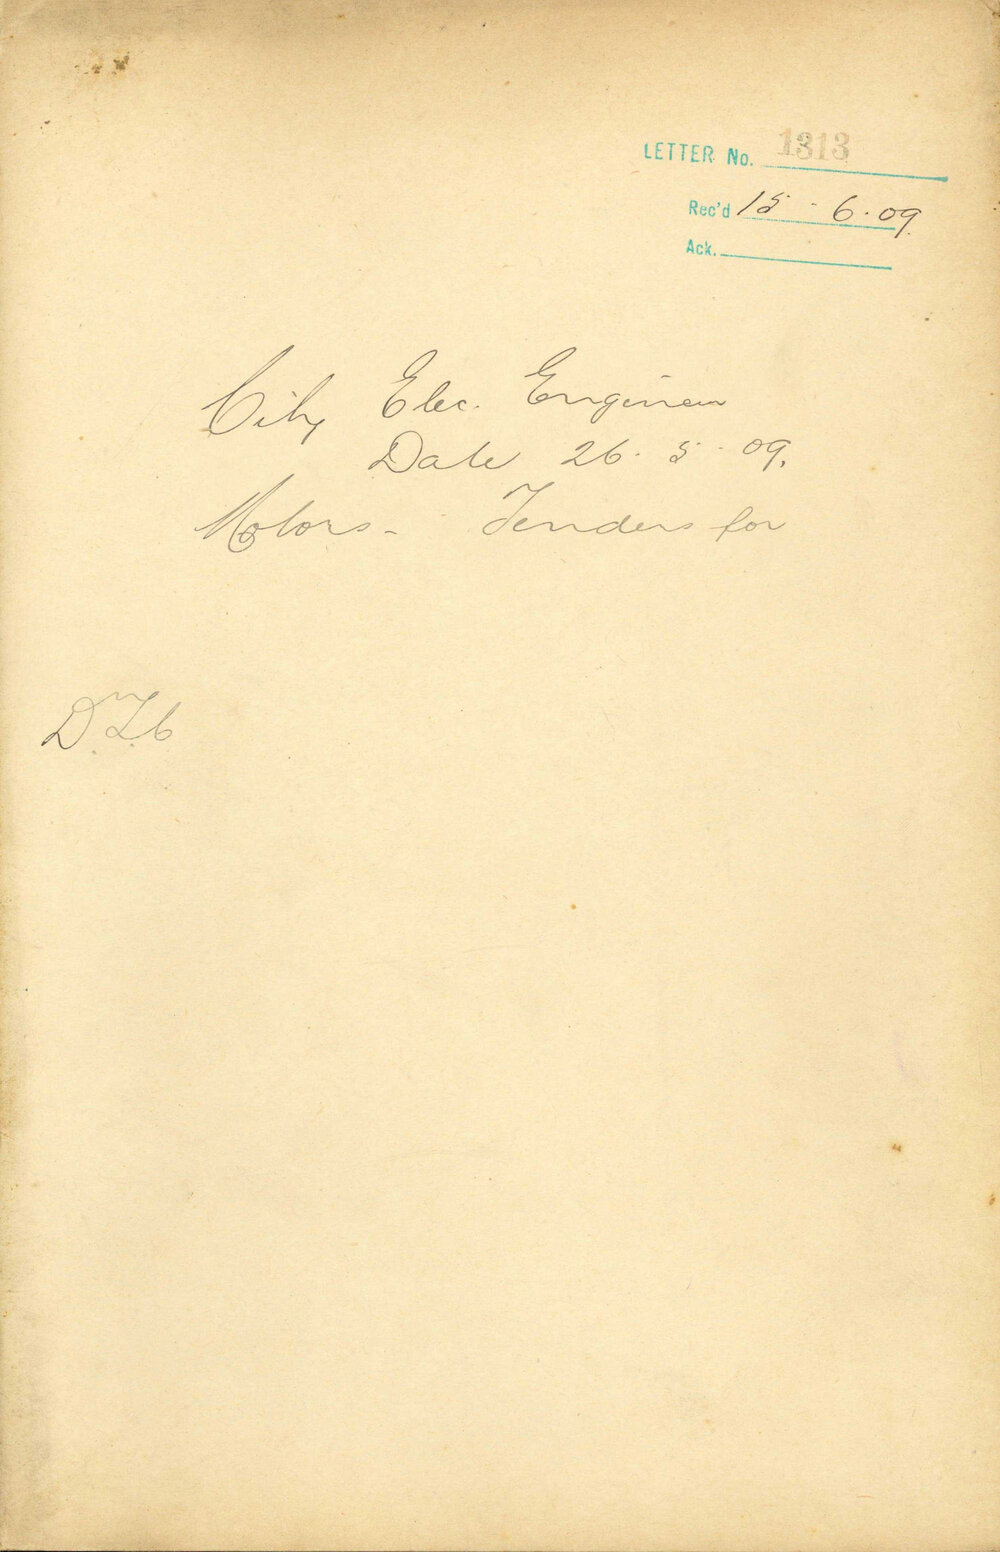 LETTER No. 1313
Rec'd 15 - 6 . 09.
Ack.
City Elec. Engineer
Date 26. 5 . 09.
Motors - Tenders for